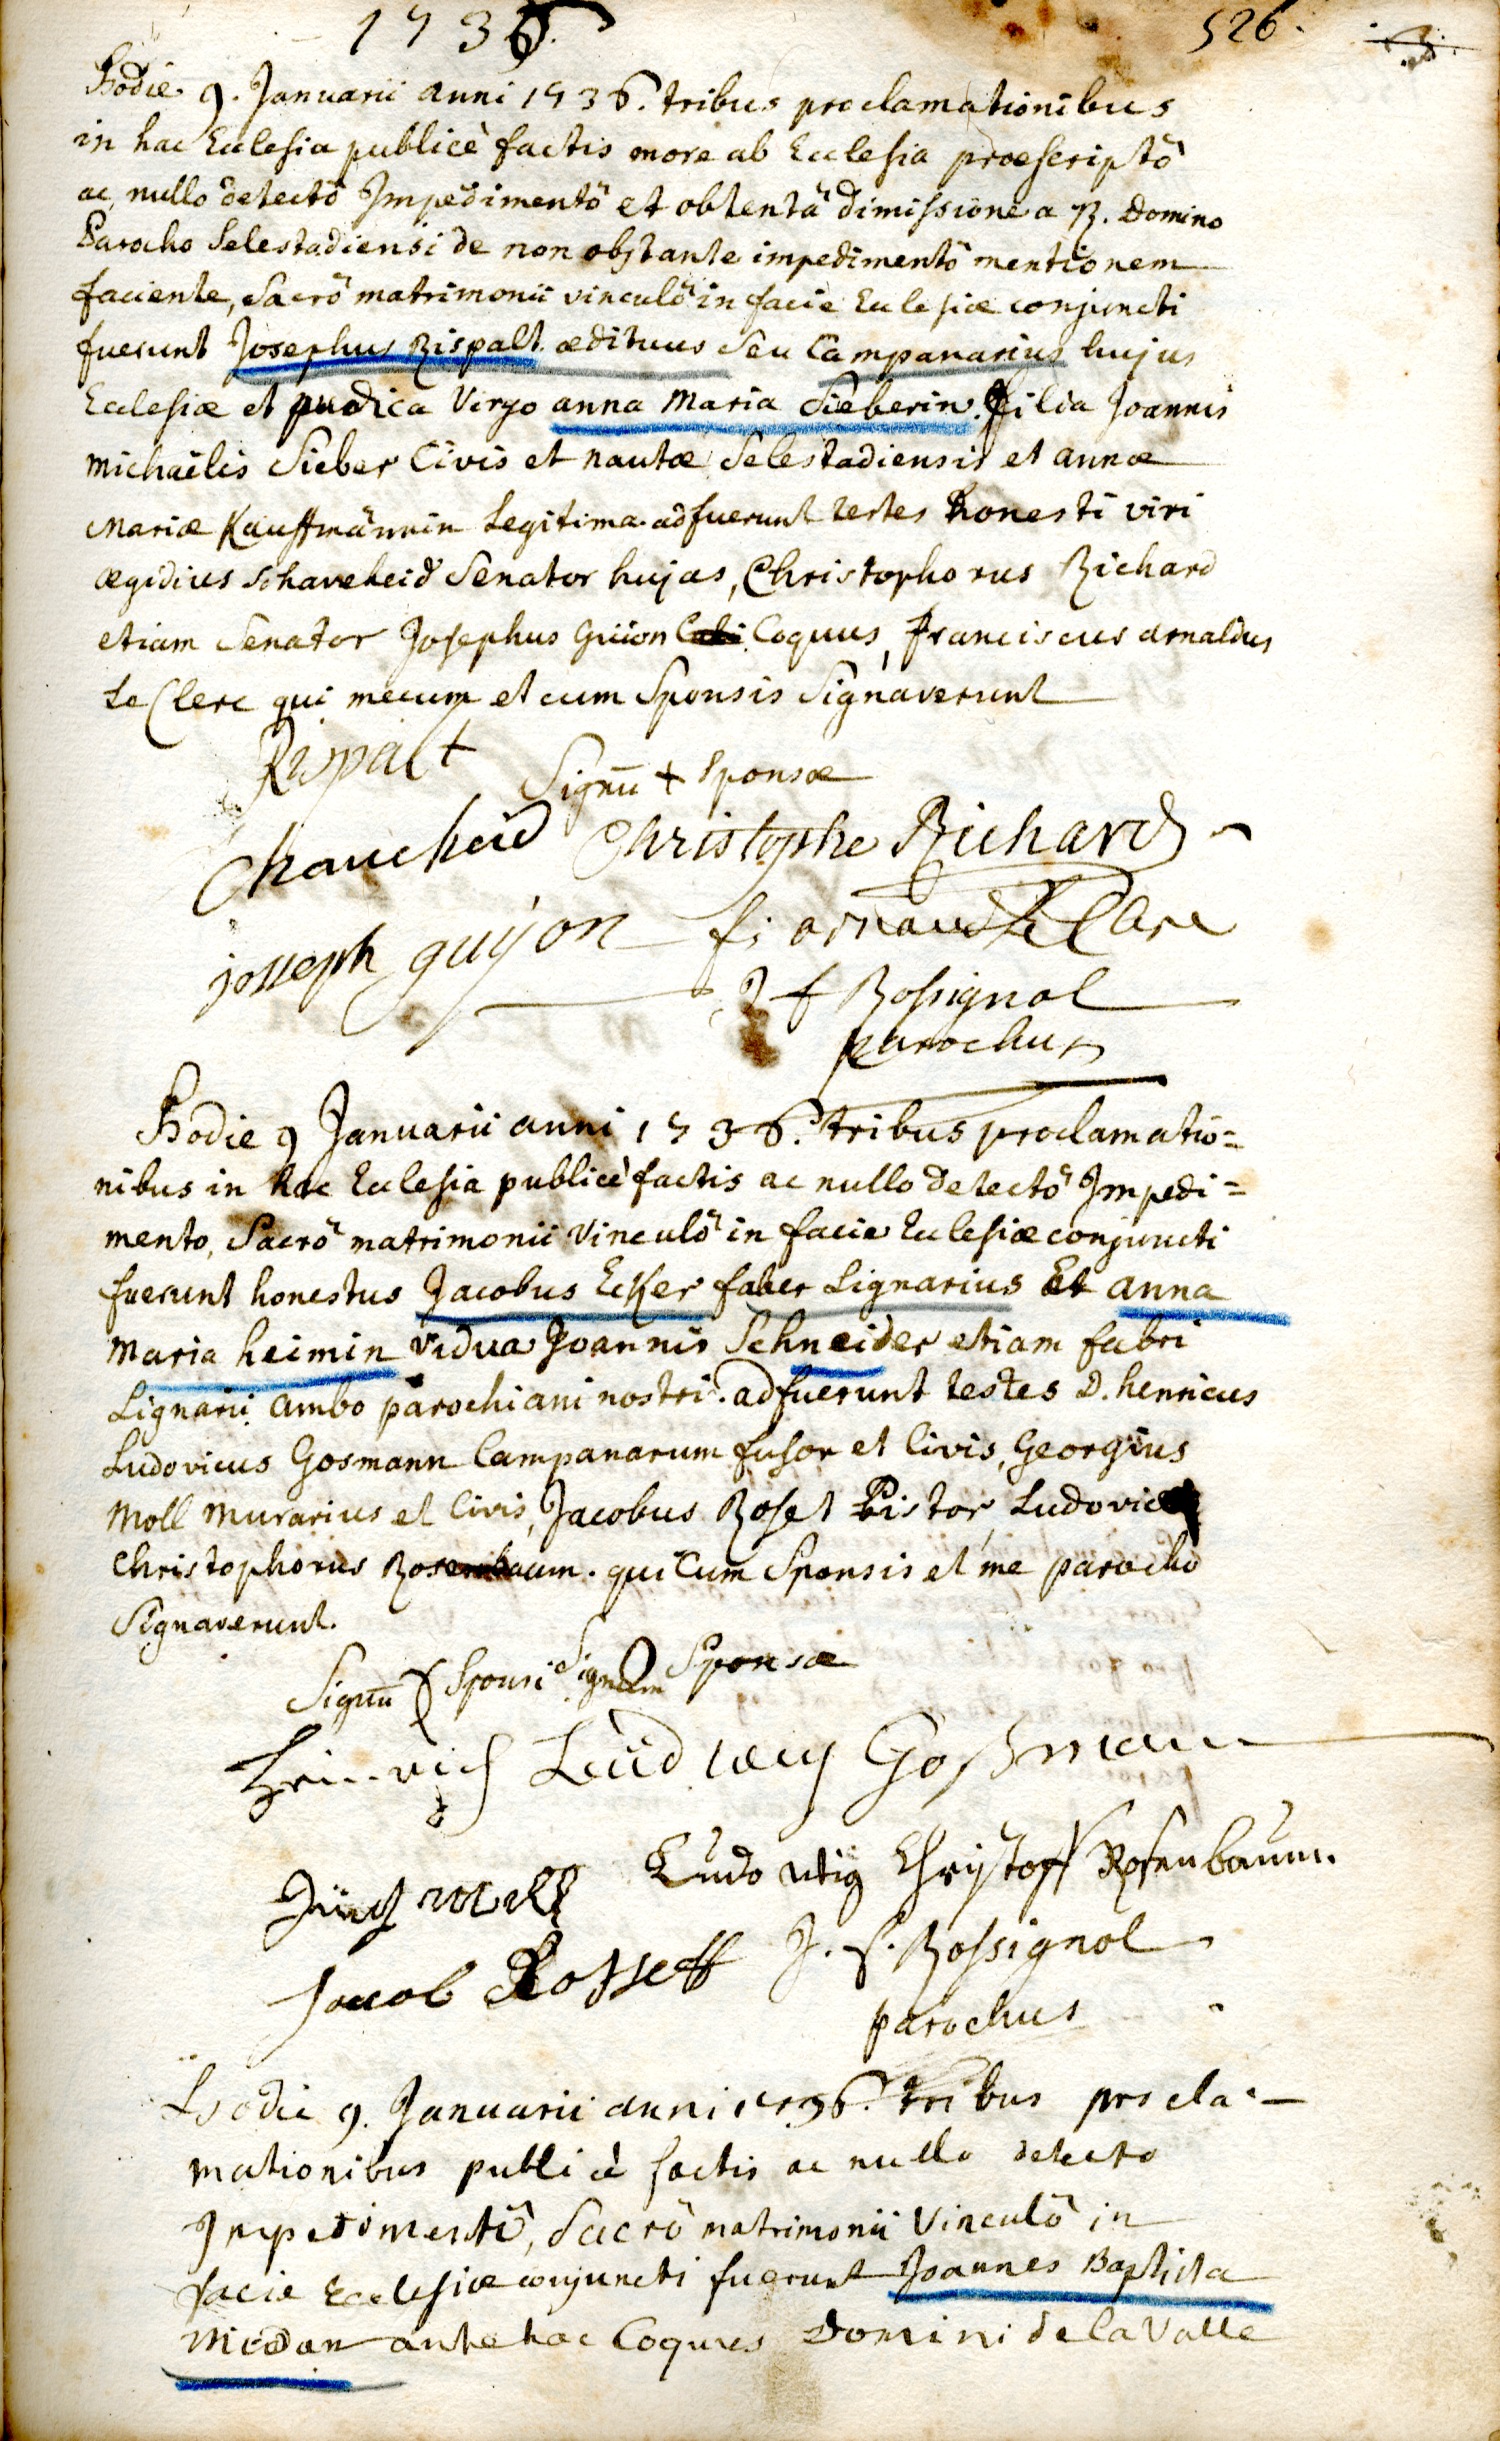 1736.
526.
Hodie 9. Januarii anni 1736. tribus proclamationibus
in hac Ecclesia publicè factis more ab Ecclesia proescriptô
ac nullo detectô Impedimentô et obtentâ dimissione a R. Domino
Parocho Selestadiensi de non obstante impedimentô mentionem
faciente, Sacrô matrimonii vinculô in facie Ecclesiæ conjuncti
fuerunt Josephus Rispalt ædituus seu Campanarius hujus
Ecclesiæ et pudica Virgo anna Maria Sieberin filia Joannis
Michaëlis Sieber Civis et nautæ Selestadiensis et annæ
Mariæ Kauffmännin Legitima. adfuerunt testes honesti viri
ægidius Schaveheid Senator hujas, Christophorus Richard
etiam Senator Josephus Guion Coquus, Franciscus arnaldus
Le Clerc qui mecum et cum Sponsis Signaverunt
Rispalt
Signū + Sponsæ
Chaucheid Christophe Richard
josseph guÿon f: arnaud le Clerc
J f Rossignol
parochus
Hodie 9 Januarii anni 1736. tribus proclamatio=
nibus in hac Ecclesia publicè factis ac nullo detectô Impedi=
mento, Sacrô matrimonii Vinculô in facie Ecclesiæ conjuncti
fuerunt honestus Jacobus Ecker faber Lignarius Et anna
Maria heimin vidua Joannis Schneider etiam fabri
Lignarii ambo parochiani nostri. adfuerunt testes D. henricus
Ludovicus Gosmann Campanarum fusor et Civis, Georgius
Moll Murarius et Civis, Jacobus Roset Pistor, Ludovic
Christophorus Rosenbaum. qui Cum Sponsis et me parochô
Signaverunt.
Signū Sponsi Signum Sponsæ
Heinrich Lüdwig Goßman
Ludowig Christoff Rosenbaum.
Jürg Moll
Jacob Rosseff J. f. Rossignol
parochus
Hodie 9. Januarii anni 1736. tribus procla-
mationibus publicè factis ac nullo detecto
Impedimentô, Sacrô matrimonii Vinculô in
facie Ecclesiæ conjuncti fuerunt Joannes Baptista
Midan antehac Coquus Domini de la Valle